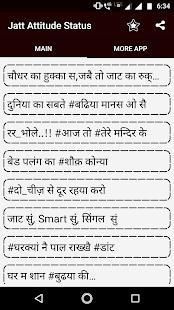 6:34
Jatt Attitude Status
MAIN
MORE APP
चौधर का हुक्का स,जबै तो जाट का रुक्...
दुनिया का सबते #बढिया मानस ओ रै
रर_भोले..!! #आज तो #तेरे मन्दिर के
बेड पलंग का #शौक़ कोन्या
#दो_चीज़ से दूर रहया करो
जाट सुं, Smart सुं, सिंगल सुं
#घरक्यां नै पाल राख्खै #डांट
घर म शान #बुढया की...